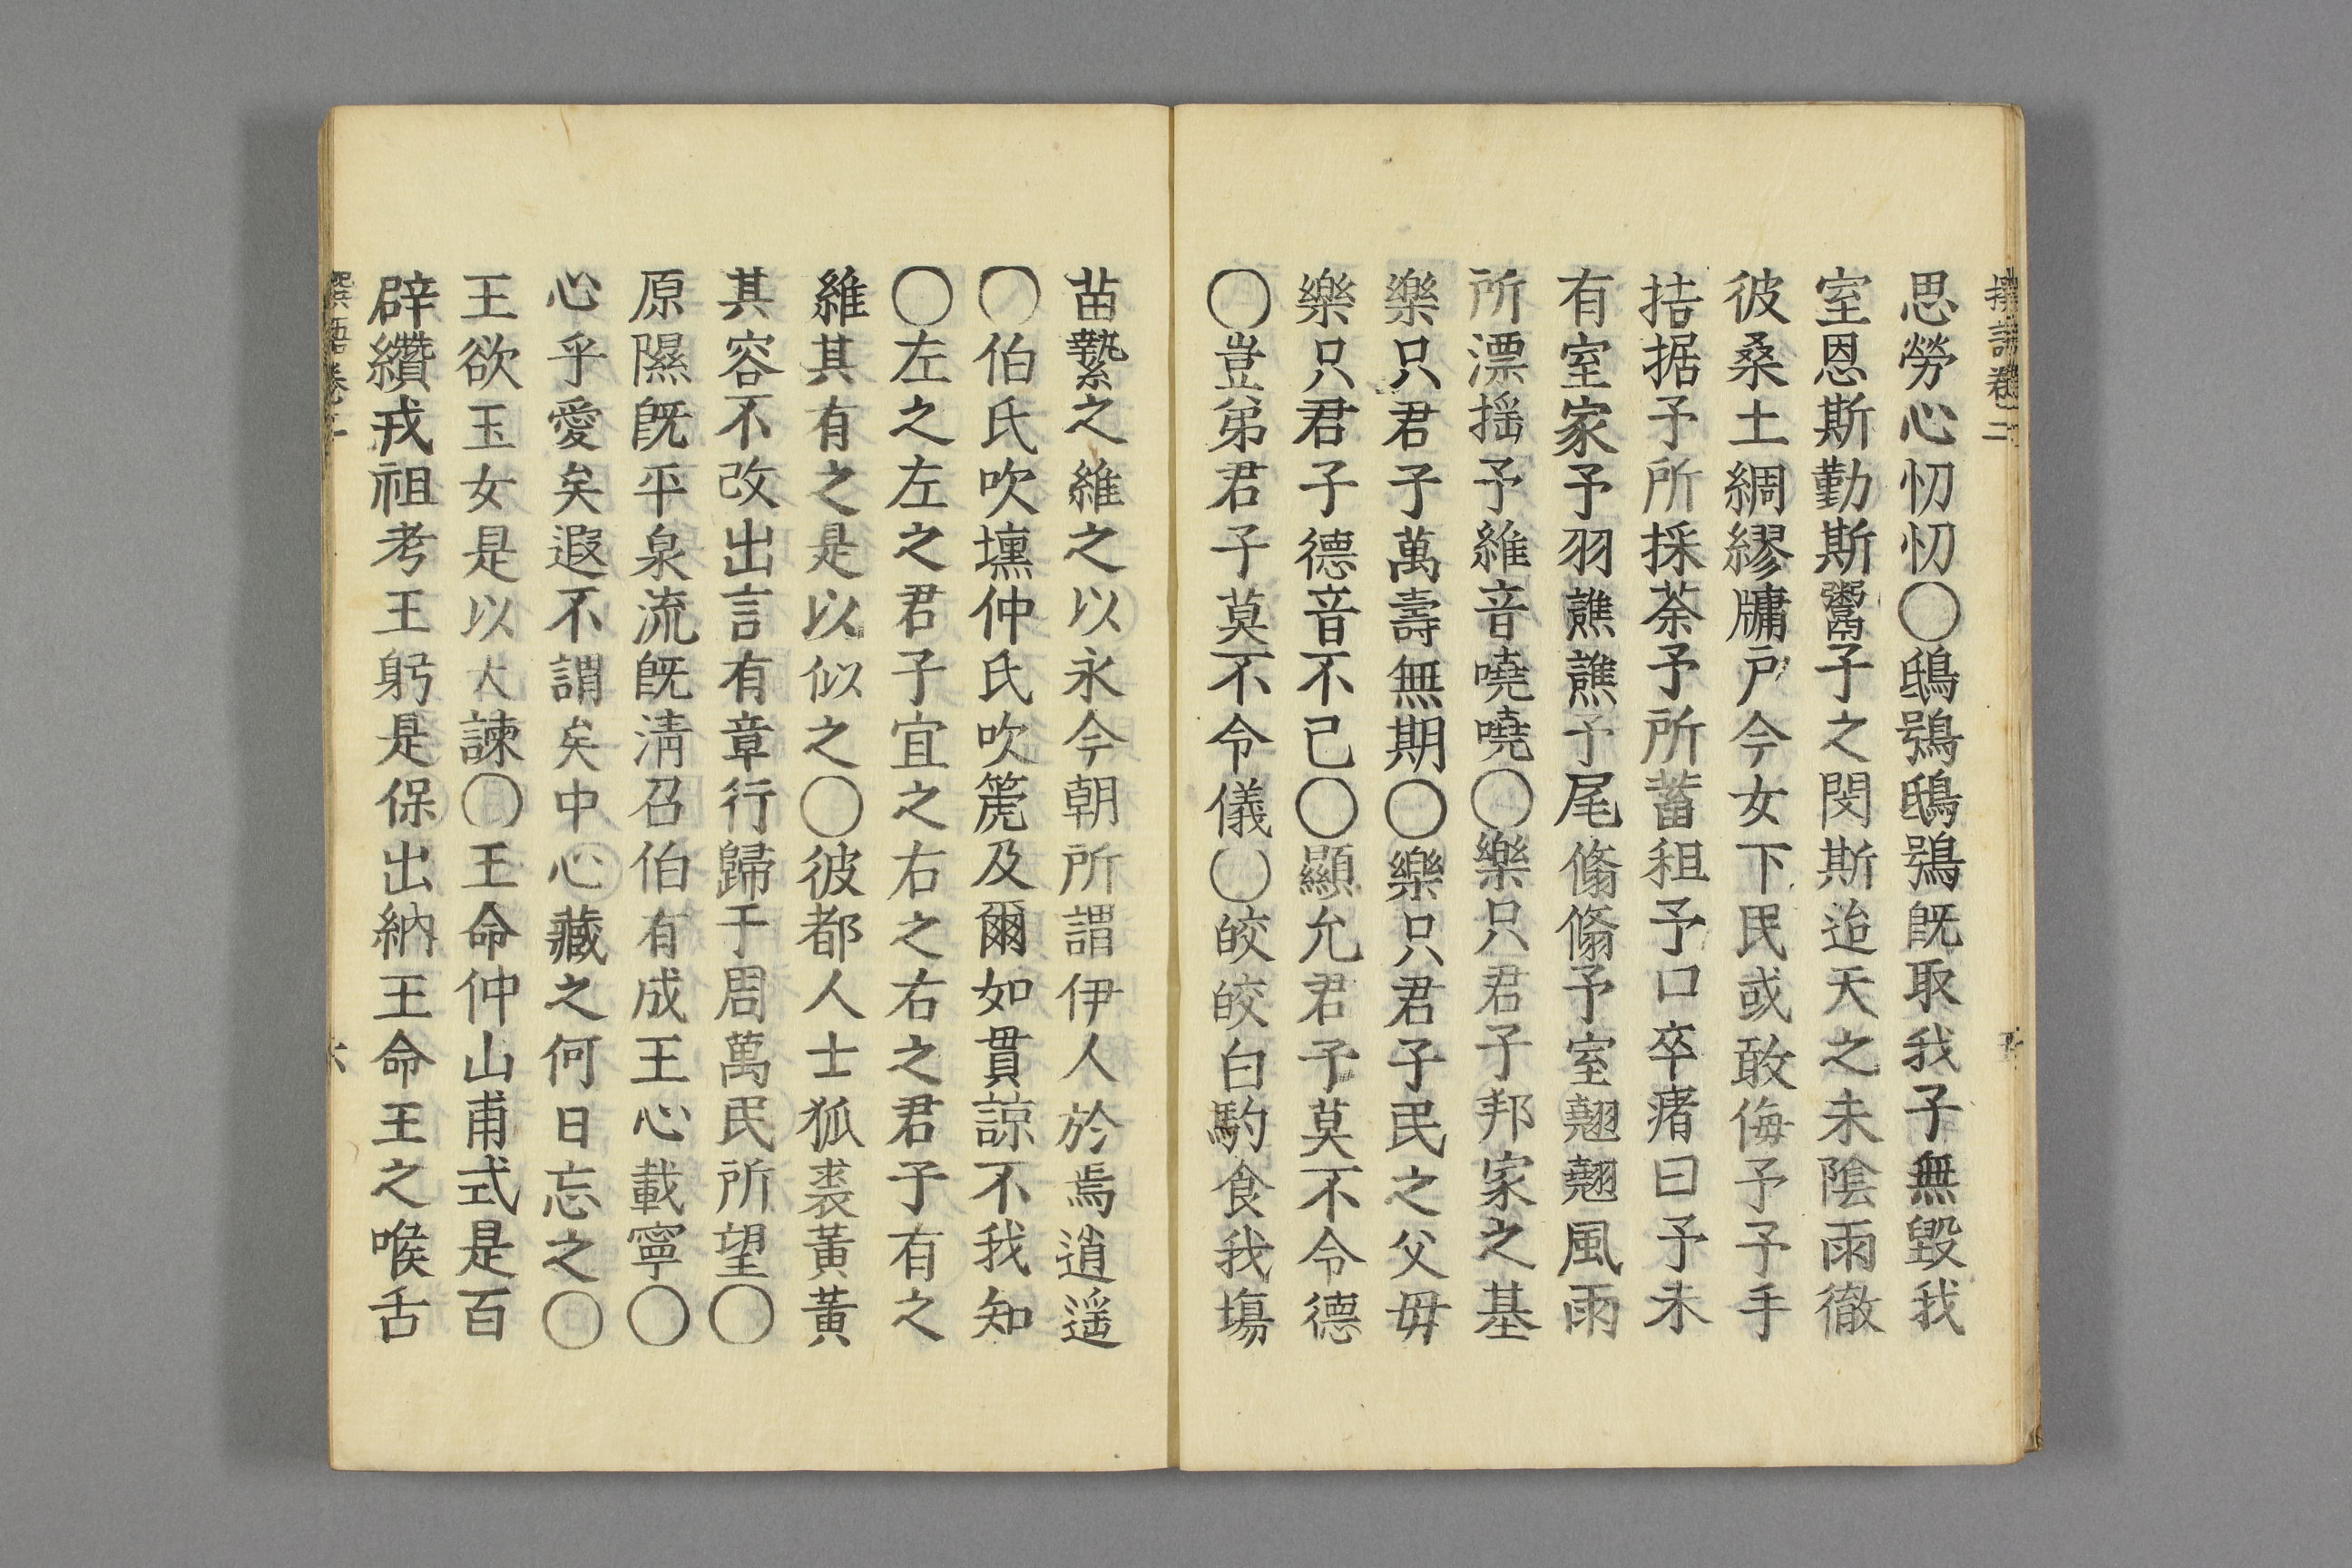 撰語卷二
思勞心忉忉〇鴟鴞鴟鴞既取我子無毀我
室恩斯勤斯鬻子之閔斯迨天之未陰雨徹
彼桑土綢繆牖戶今女下民或敢侮予予手
拮据予所採荼予所蓄租予口卒瘏曰予未
有室家予羽譙譙予尾翛翛予室翹翹風雨
所漂搖予維音嘵嘵〇樂只君子邦家之基
樂只君子萬壽無期〇樂只君子民之父毋
樂只君子德音不已〇顯允君子莫不令德
〇豈弟君子莫不令儀〇皎皎白駒食我場
苗縶之維之以永今朝所謂伊人於焉逍遥
〇伯氏吹壎仲氏吹箎及爾如貫諒不我知
〇左之左之君子宜之右之右之君子有之
維其有之是以似之〇彼都人士狐裘黃黃
其容不改出言有章行歸于周萬民所望〇
原隰既平泉流既淸召伯有成王心載寧〇
心乎愛矣遐不謂矣中心藏之何日忘之〇
王欲玉女是以大諫〇王命仲山甫式是百
辟纘戎祖考王躬是保出納王命王之喉舌
撰語卷二 六